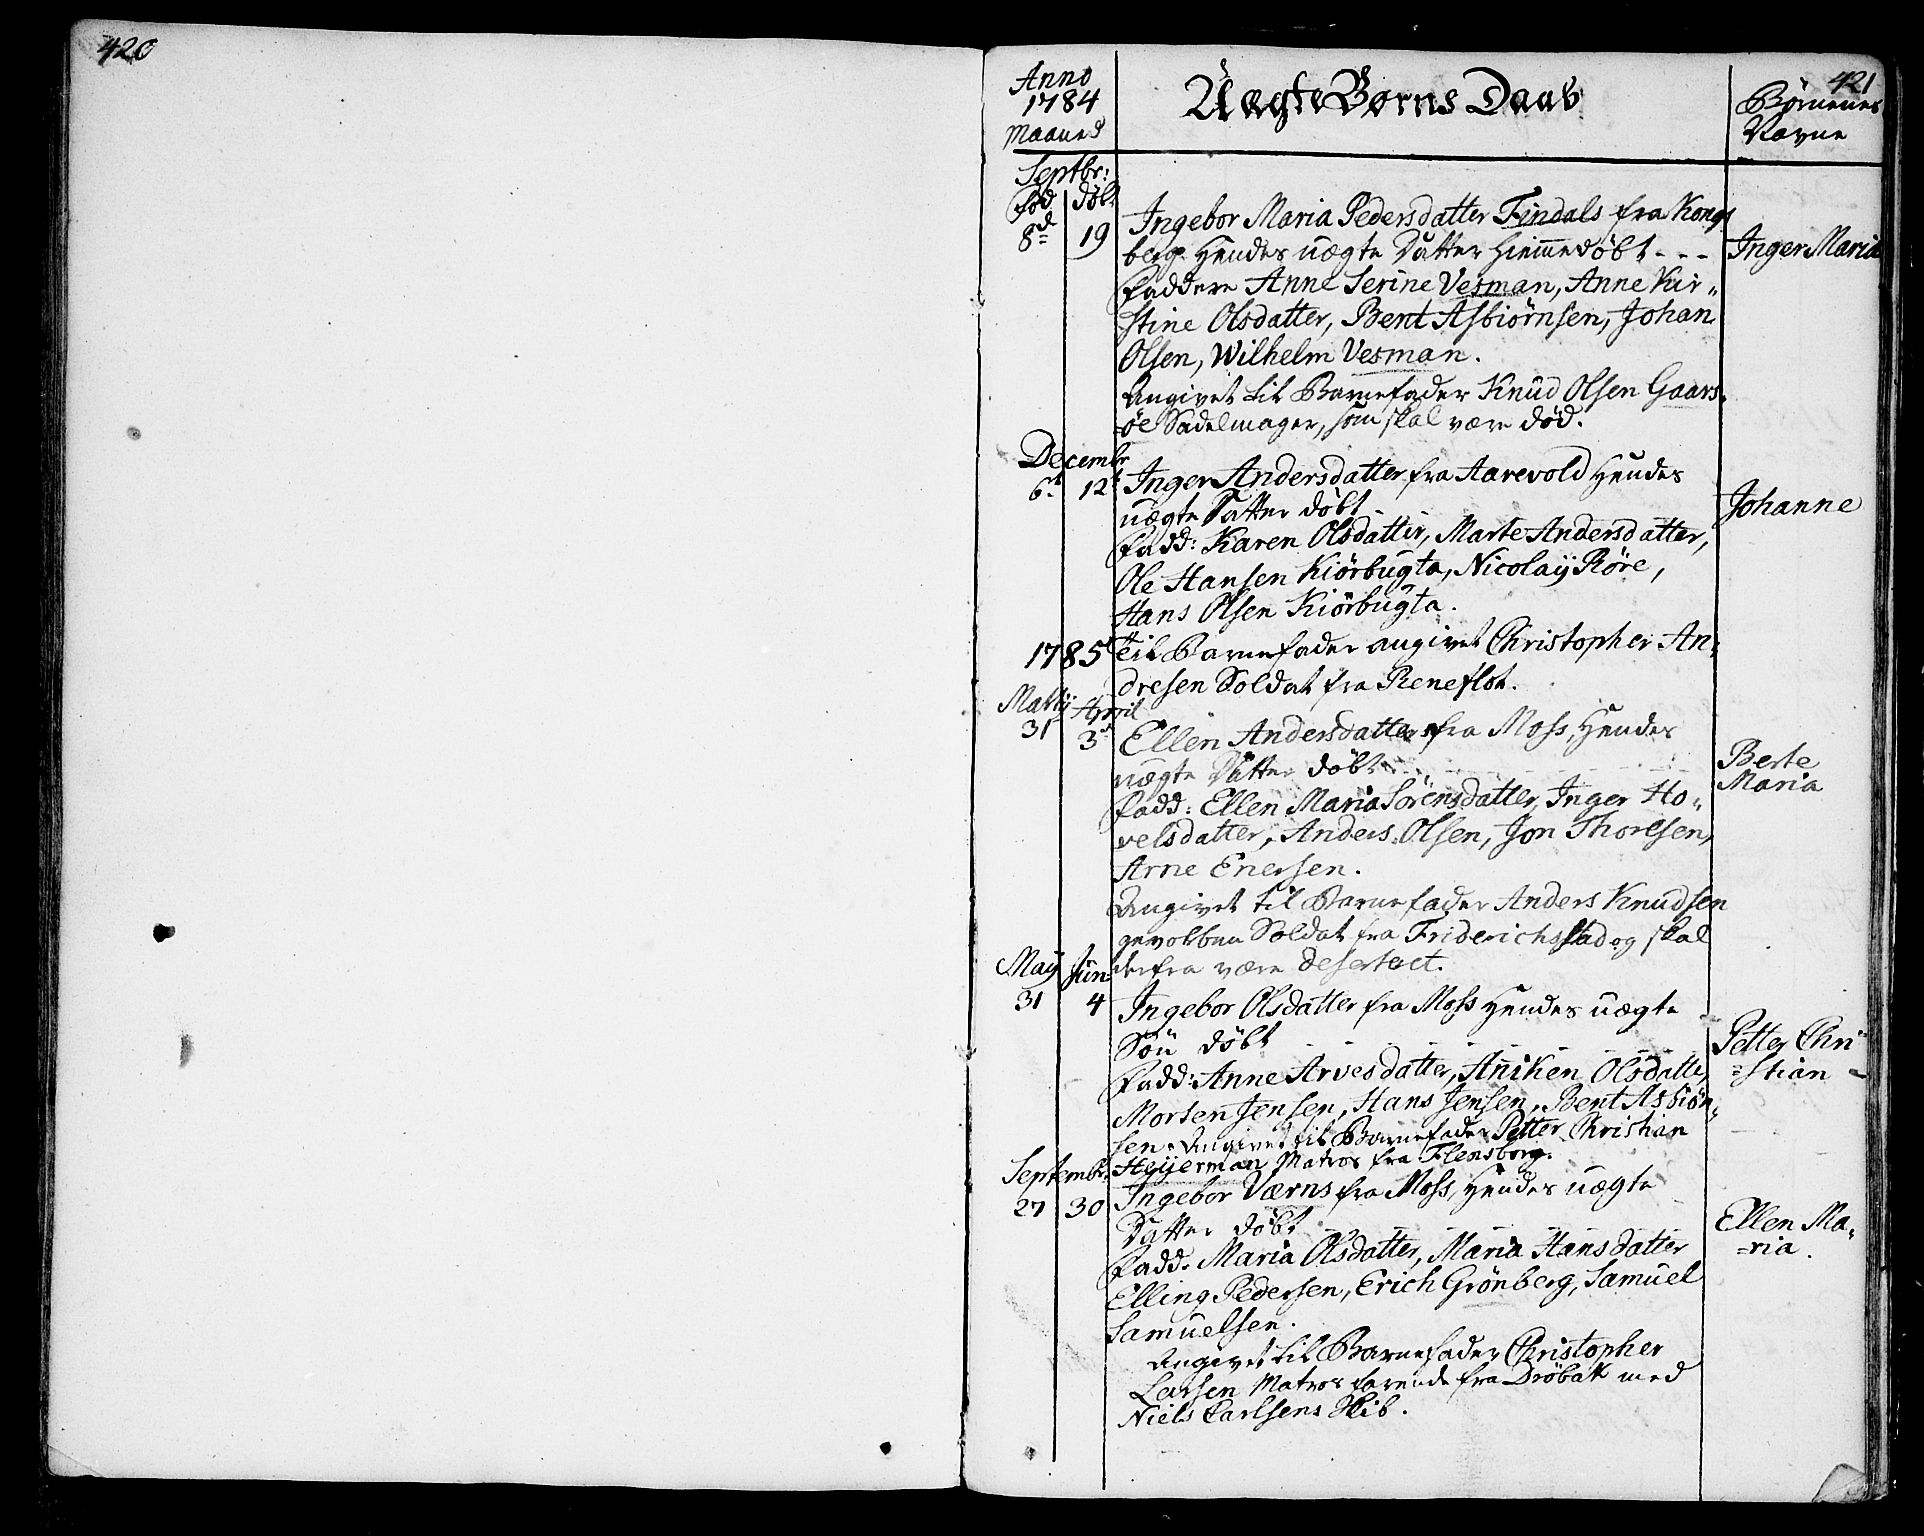 420
421
Anno
1784
Maaned
Uægte Børns Daab
Børnenes
Navne
Septbr:
Fød döbt
8de 19
Ingebor Maria Pedersdatter Findals fra Kongs
berg Hendes uægte Datter hiemmedöbt - - -
Inger Maria
Faddere Anne Serine Vesman, Anne Kir„
stine Olsdatter, Bent Asbiörnsen, Johan
Olsen, Wilhelm Vesman.
Angivet til Barnefader Knud Olsen Gaars„
öe Sadelmager, som skal være död.
Decembr
6t 12t
Inger Andersdatter fra Aarevold Hendes
uægte Datter döbt
Johanne
Fadd: Karen Olsdatter, Marte Andersdatter,
Ole Hansen Kiörbugta, Nicolaÿ Röre,
Hans Olsen Kiörbugta.
1785
Til Barnefader angivet Christopher An„
dresen Soldat fra Reneflot.
Martij April
31 3d
Ellen Andersdatter fra Moss, Hendes
uægte Datter döbt
Berte
Maria
Fadd: Ellen Maria Sörensdatter, Inger Ho„
velsdatter, Anders Olsen, Jon Thoresen,
Arne Enersen.
Angivet til Barnefader Anders Knudsen
gevorben Soldat fra Friderichsstad og skal
derfra være deserteret.
Maÿ Jun:
31 4
Ingebor Olsdatter fra Moss Hendes uægte
Sön döbt
Petter Chri
=stian
Fadd: Anne Arvesdatter, Aniken Olsdatter,
Morten Jensen, Hans Jensen, Bent Asbiörn„
sen. Angivet til Barnefader Petter Christian
Heÿerman Matros fra Flensborg.
Septembr.
27 30
Ingebor Værns fra Moss, Hendes uægte
Datter döbt
Ellen Ma„
=ria.
Fadd. Maria Olsdatter, Maria Hansdatter
Elling Pedersen, Erich Grönberg, Samuel
Samuelsen.
Angivet til Barnefader Christopher
Larsen Matros farende fra Dröbak med
Niels Carlsens Skib.